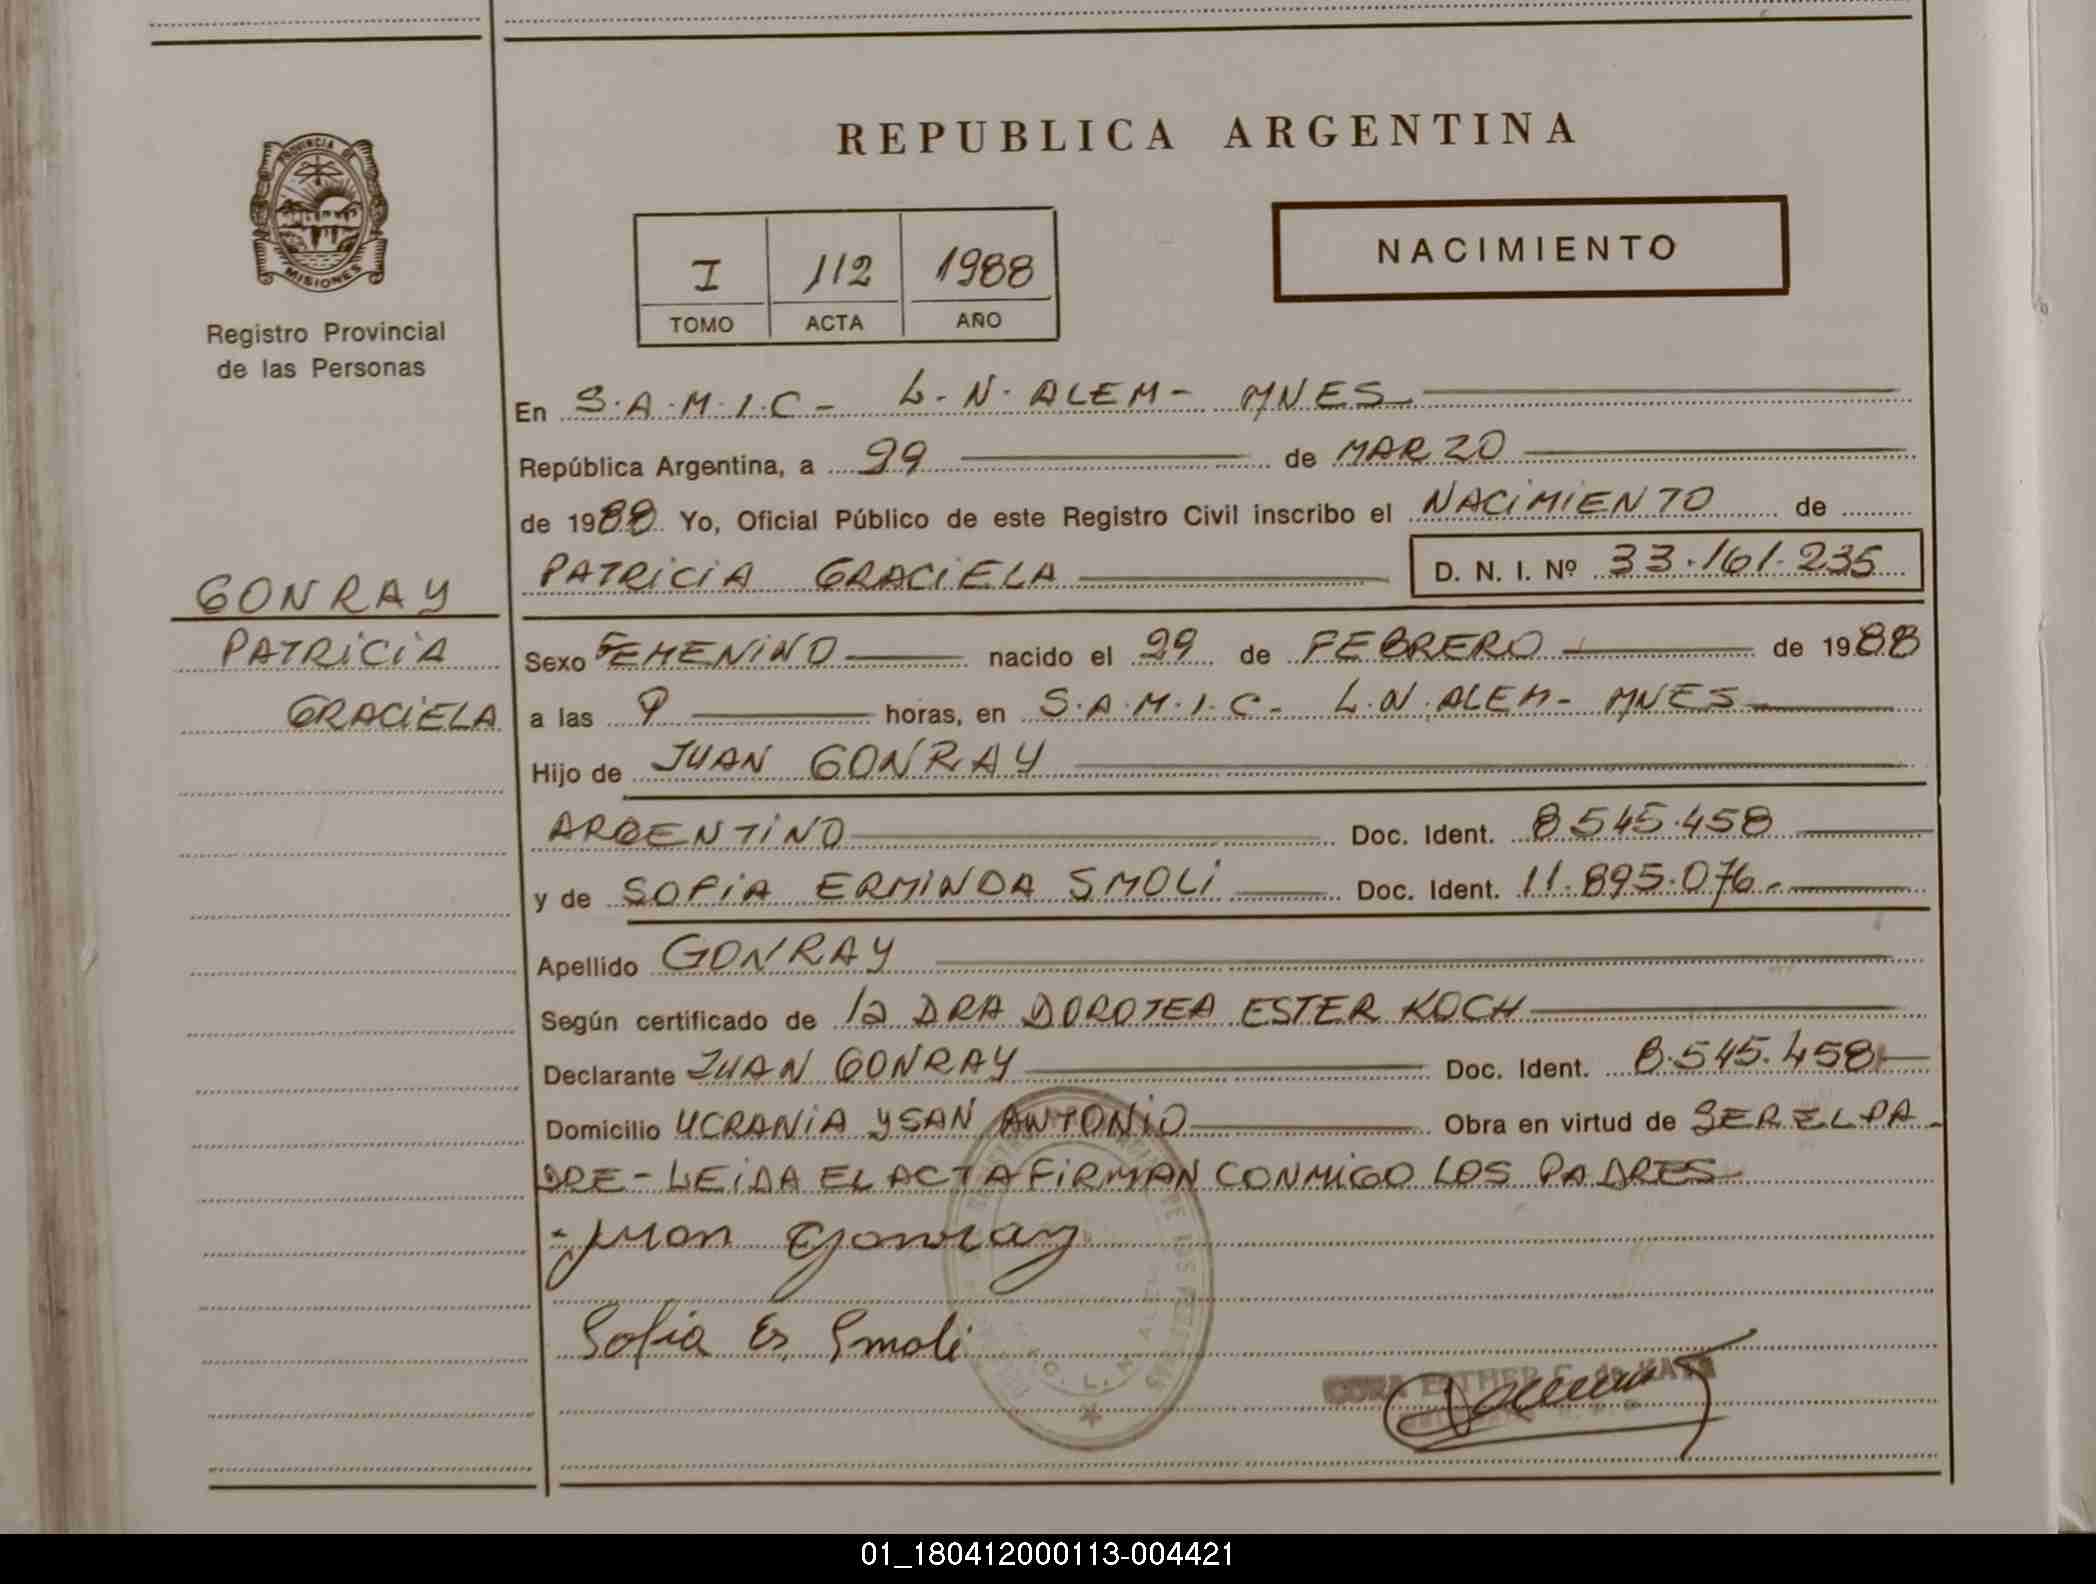 REPUBLICA ARGENTINA
PROVINCIA DE
MISIONES
Registro Provincial
de las Personas
I 112 1988
TOMO ACTA AÑO
NACIMIENTO
En S.A.M.I.C- L.N.ALEM- MNES
República Argentina, a 29 de MARZO
de 1988 Yo, Oficial Público de este Registro Civil inscribo el NACIMIENTO de
PATRICIA GRACIELA D. N. I. Nº 33.161.235
GONRAY
PATRICIA
GRACIELA
Sexo FEMENINO nacido el 29 de FEBRERO de 1988
a las 9 horas, en S.A.M.I.C- L.N.ALEM- MNES
Hijo de JUAN GONRAY
ARGENTINO Doc. Ident. 8.545.458
y de SOFIA ERMINDA SMOLI Doc. Ident. 11.895.076.-
Apellido GONRAY
Según certificado de la DRA DOROTEA ESTER KOCH
Declarante JUAN GONRAY Doc. Ident. 8.545.458
Domicilio UCRANIA Y SAN ANTONIO Obra en virtud de SER EL PA-
DRE - LEIDA EL ACTA FIRMAN CONMIGO LOS PADRES
Juan Gonray
Sofia E. Smoli
ESTHER
01_180412000113-004421